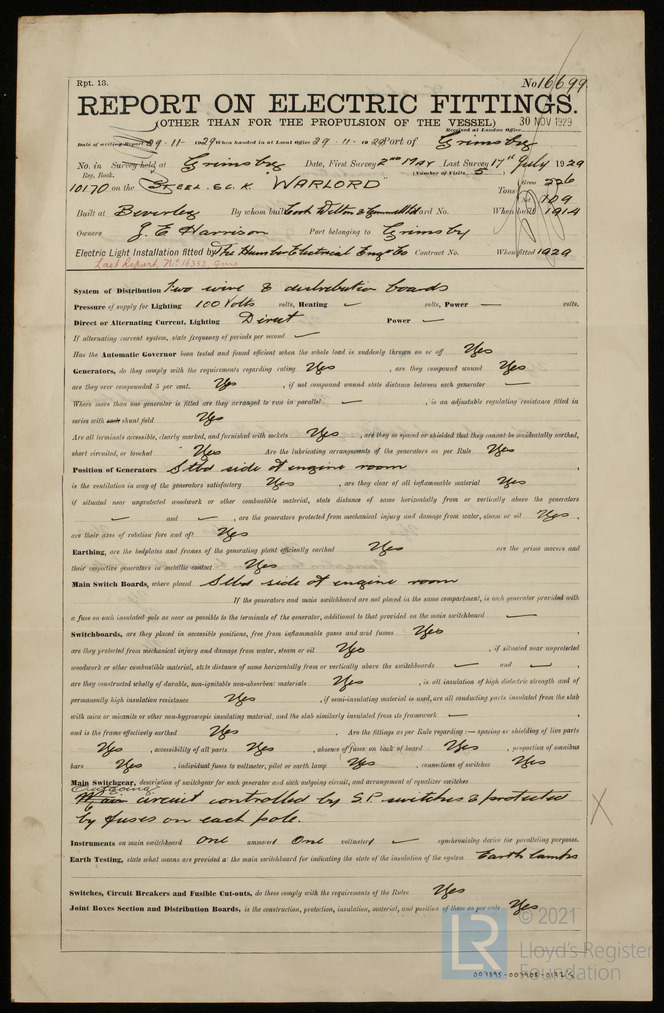 Rpt. 13.
No 16699.
REPORT ON ELECTRIC FITTINGS.
(OTHER THAN FOR THE PROPULSION OF THE VESSEL)
30 NOV 1929
Received at London Office
Date of writing Report 29-11-1929 When handed in at Local Office 29-11-1929 Port of Grimsby
No. in Survey held at Grimsby Date, First Survey 2nd May Last Survey 17th July 1929
Reg. Book. (Number of Visits 5)
10170 on the Steel S.C.K. "WARLORD" Tons Gross 226
Net 109
Built at Beverley By whom built Cook Welton & Gemmell Ltd Yard No. When built 1914
Owners J. E. Harrison Port belonging to Grimsby
Electric Light Installation fitted by The Humber Electrical Engg Co Contract No. When fitted 1929
Last Report, No 16352 Gms
System of Distribution Two wire & distribution boards
Pressure of supply for Lighting 100 Volts volts, Heating — volts, Power — volts.
Direct or Alternating Current, Lighting Direct Power —
If alternating current system, state frequency of periods per second —
Has the Automatic Governor been tested and found efficient when the whole load is suddenly thrown on or off Yes
Generators, do they comply with the requirements regarding rating Yes , are they compound wound Yes
are they over compounded 5 per cent. Yes , if not compound wound state distance between each generator —
Where more than one generator is fitted are they arranged to run in parallel — , is an adjustable regulating resistance fitted in
series with each shunt field Yes
Are all terminals accessible, clearly marked, and furnished with sockets Yes , are they so spaced or shielded that they cannot be accidentally earthed,
short circuited, or touched Yes Are the lubricating arrangements of the generators as per Rule Yes
Position of Generators Stbd side of engine room
is the ventilation in way of the generators satisfactory Yes , are they clear of all inflammable material Yes
if situated near unprotected woodwork or other combustible material, state distance of same horizontally from or vertically above the generators
— and — , are the generators protected from mechanical injury and damage from water, steam or oil Yes ,
are their axes of rotation fore and aft Yes
Earthing, are the bedplates and frames of the generating plant efficiently earthed Yes are the prime movers and
their respective generators in metallic contact Yes
Main Switch Boards, where placed Stbd side of engine room
If the generators and main switchboard are not placed in the same compartment, is each generator provided with
a fuse on each insulated pole as near as possible to the terminals of the generator, additional to that provided on the main switchboard —
Switchboards, are they placed in accessible positions, free from inflammable gases and acid fumes Yes ,
are they protected from mechanical injury and damage from water, steam or oil Yes , if situated near unprotected
woodwork or other combustible material, state distance of same horizontally from or vertically above the switchboards — and — ,
are they constructed wholly of durable, non-ignitable non-absorbent materials Yes , is all insulation of high dielectric strength and of
permanently high insulation resistance Yes , if semi-insulating material is used, are all conducting parts insulated from the slab
with mica or micanite or other non-hygroscopic insulating material, and the slab similarly insulated from its framework — ,
and is the frame effectively earthed Yes . Are the fittings as per Rule regarding :— spacing or shielding of live parts
Yes , accessibility of all parts Yes , absence of fuses on back of board Yes , proportion of omnibus
bars Yes , individual fuses to voltmeter, pilot or earth lamp Yes , connections of switches Yes
Main Switchgear, description of switchgear for each generator and each outgoing circuit, and arrangement of equalizer switches
Outgoing
Main circuit controlled by S.P. switches & protected
by fuses on each pole.
Instruments on main switchboard one ammeter One voltmeter — synchronising device for paralleling purposes.
Earth Testing, state what means are provided at the main switchboard for indicating the state of the insulation of the system Earth lamps
Switches, Circuit Breakers and Fusible Cut-outs, do these comply with the requirements of the Rules Yes
Joint Boxes Section and Distribution Boards, is the construction, protection, insulation, material, and position of these as per rule Yes
LR © 2021
Lloyd's Register
Foundation